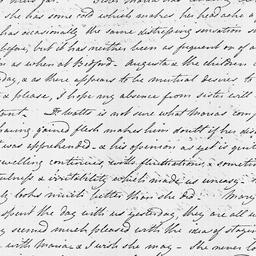 she has some cold which makes her headache a
has occasionally the same distressing sensation
before, but it has neither been as frequent or of a
as when at Bedford. Augusta & the children
day, & as there appears to be mutual desires to
& please, I hope my absence from sister will
Dr Watts is not sure what Marias com
having gained flesh makes him doubt if her dis
was apprehended - & his opinion as yet is quit
swelling continues, with fluctuations, & sometim
& irritability which made us uneasy.
looks much better than she did - Mary
spent the day with us yesterday, they are all w
seemed much pleased with the idea of stayin
with Maria & I wish she may - She never lo